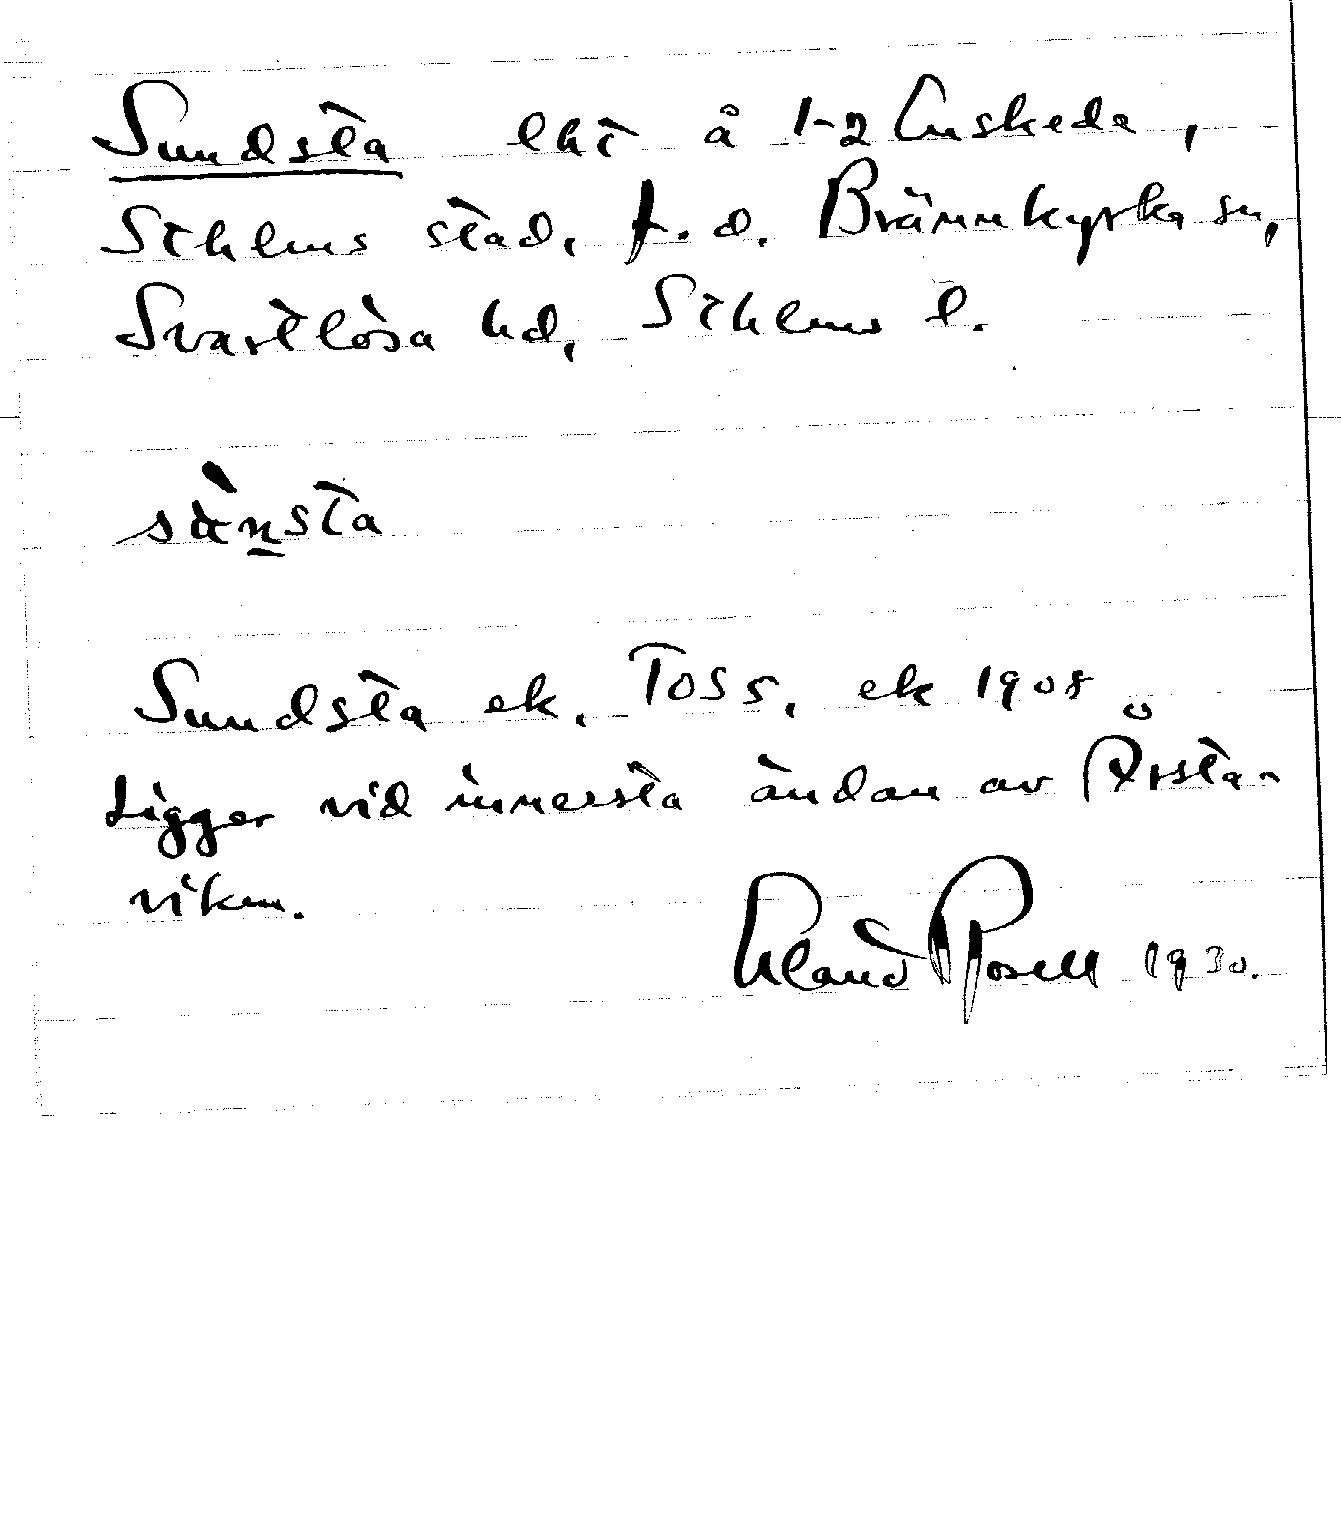 Sundsta lht å 1-2 Enskede,
Sthlms stad, f.d. Brännkyrka sn,
Svartlösa hd, Sthlms l.
sàn̲sta
Sundsta ek. Toss, ek 1908
Ligger vid innersta ändan av Årsta-
viken.
Eland Rosell 1930.